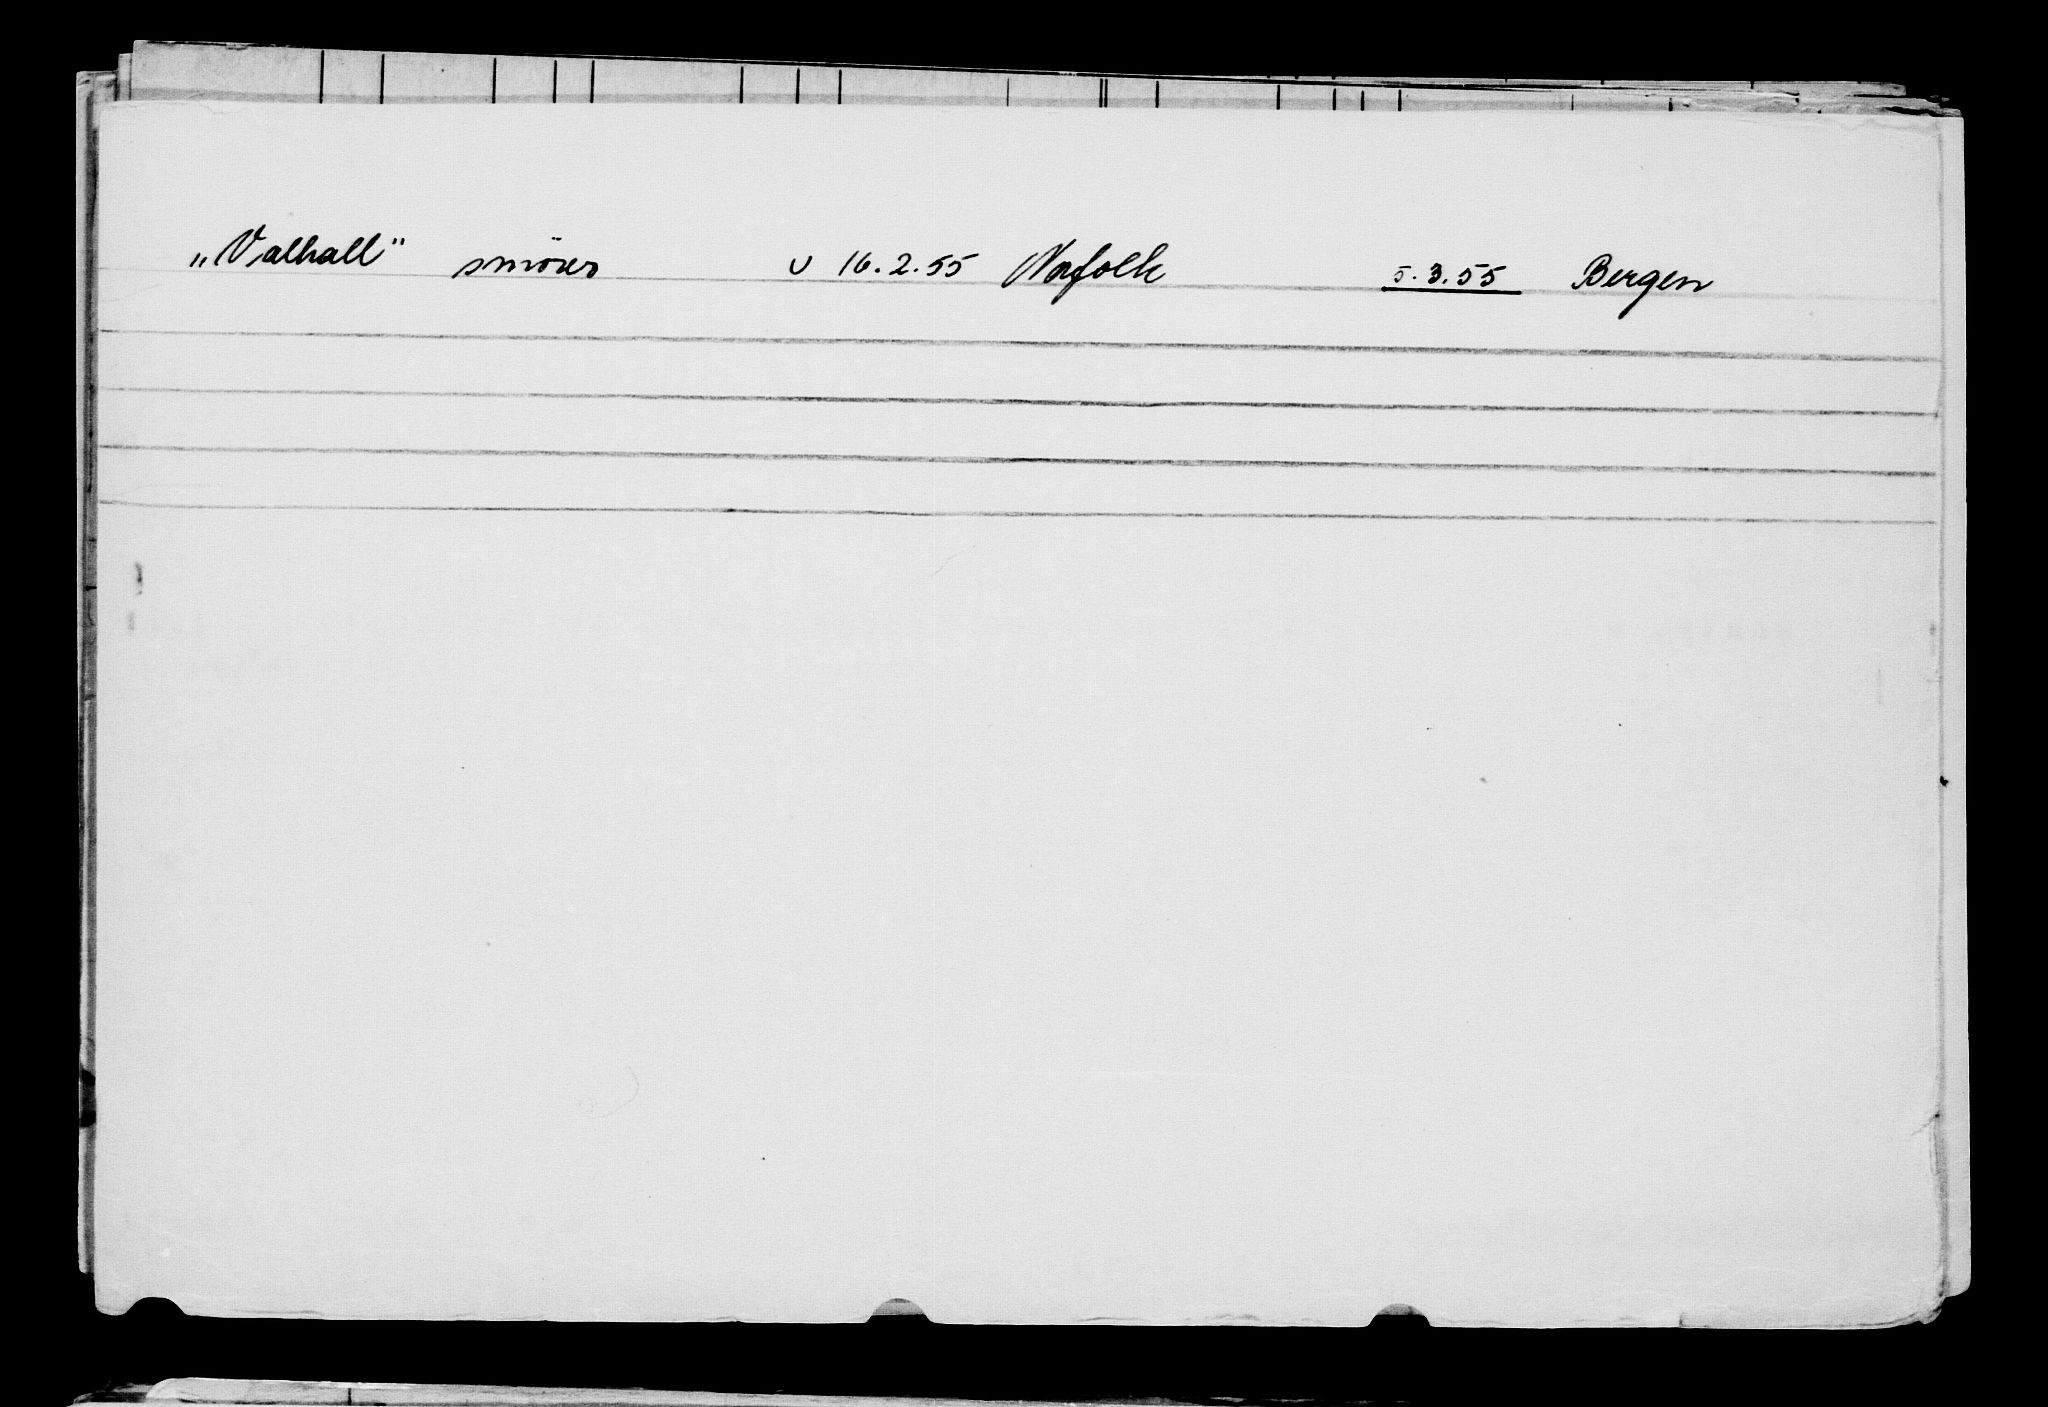 „Valhall" smörer u 16.2.55 Norfolk 5.3.55 Bergen